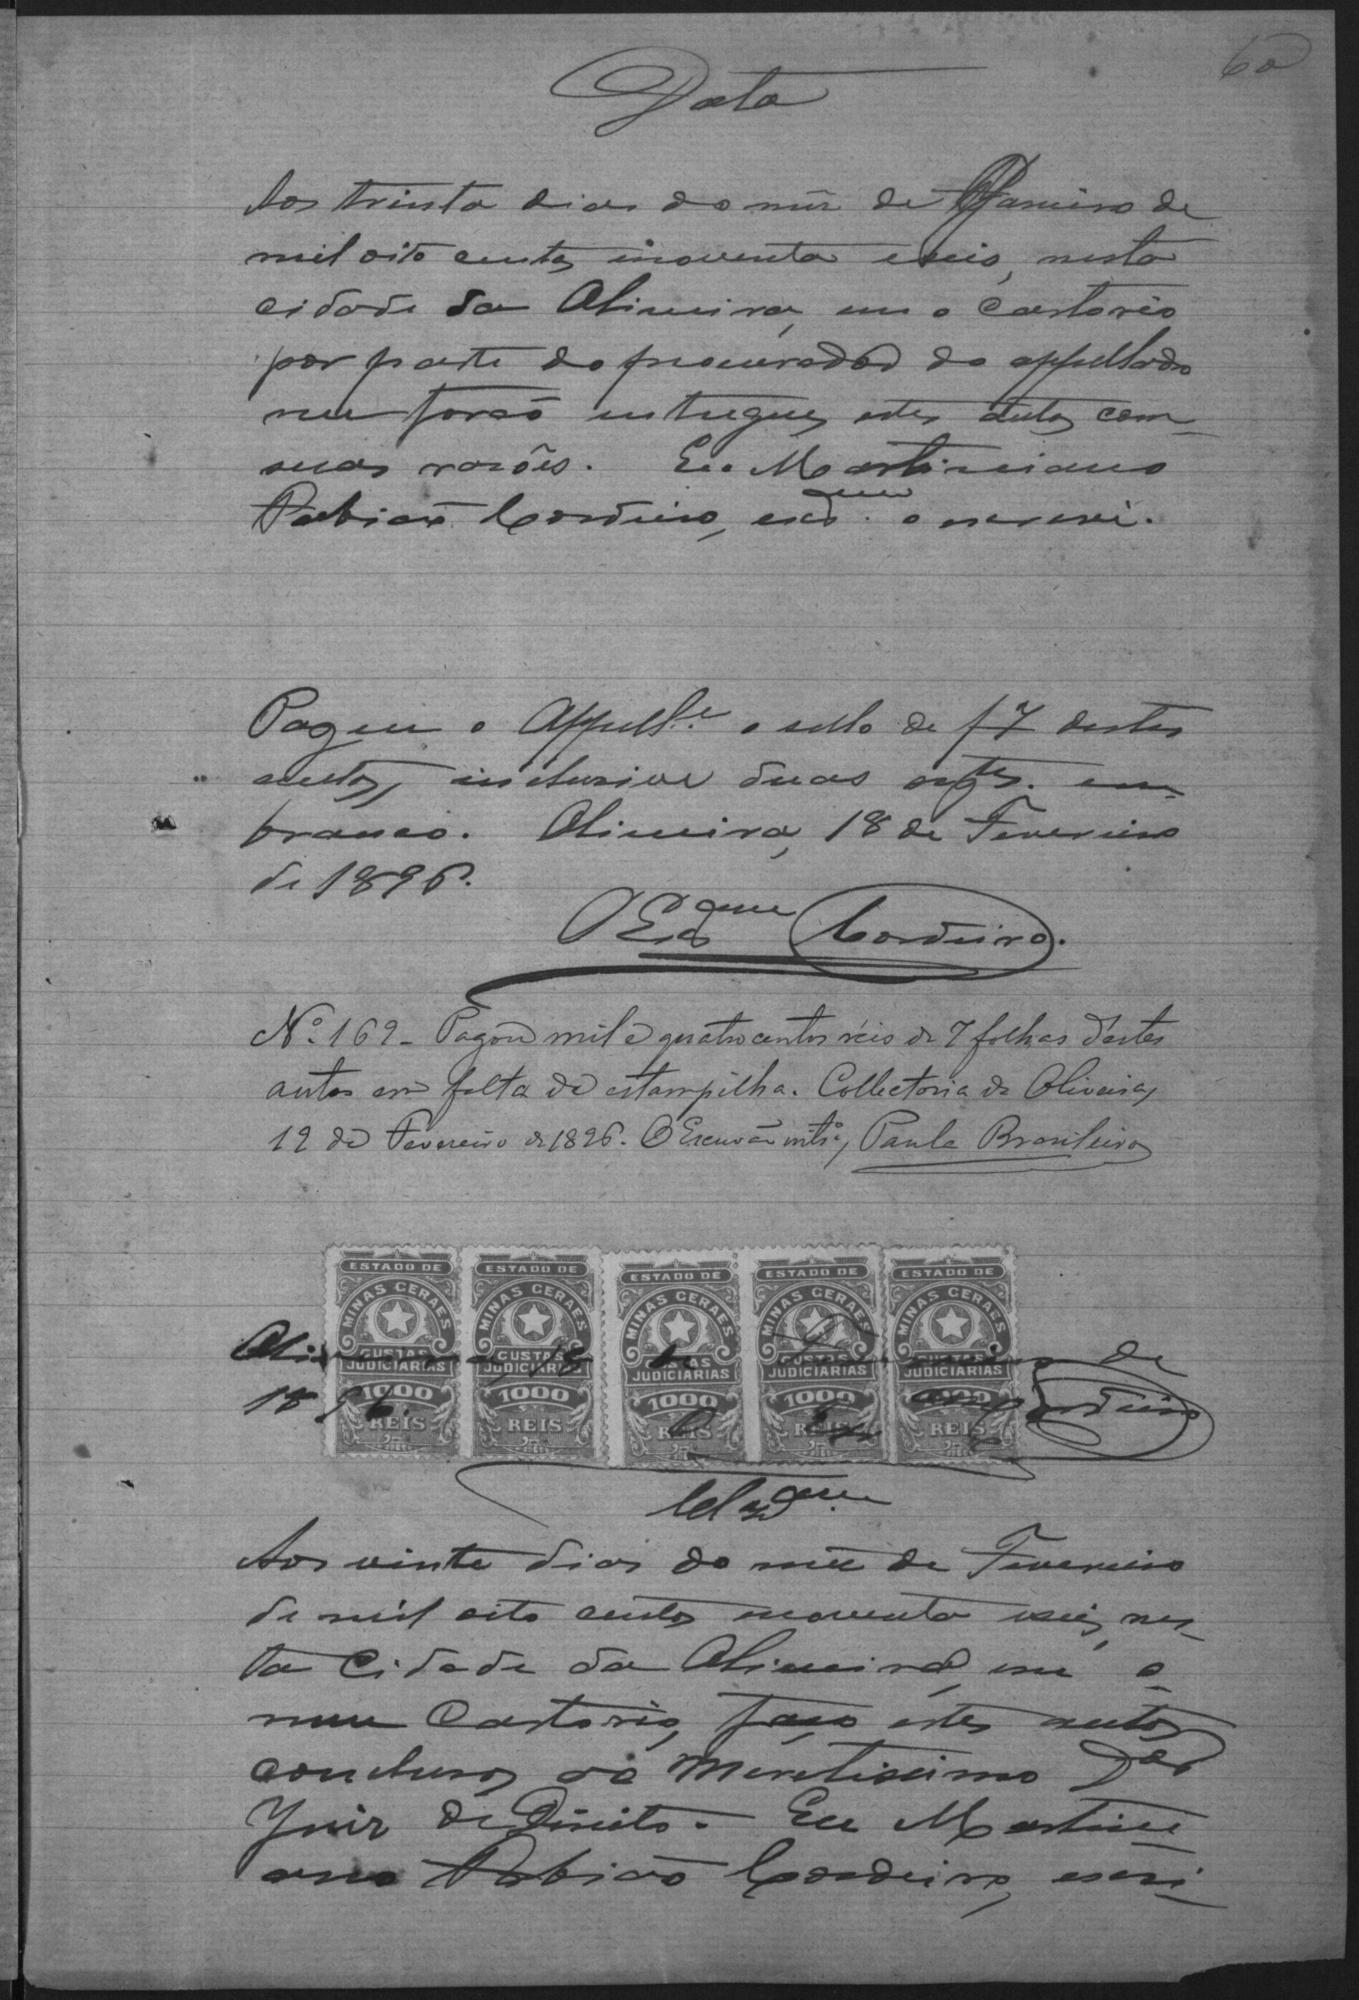 60
Data
Aos trinta dias do mez de Janeiro de
mil oito centos inoventa e seis, nesta
cidade da Oliveira, em o Cartorio
por parte do procurador do appellado
me forão entregues estes autos com
suas rasões. Eu Martiniano
Fabião Cordeiro, escᵐ. o escrevi.
Pagou o Appellᵉ o sello de f 7 destes
autos, inclusive duas em
branco. Oliveira, 18 de Fevereiro
de 1896.
O Escᵃᵐ Cordeiro.
Nº. 169 - Pagou mil e quatrocentos réis de 7 folhas d'estes
autos em falta de estampilha. Collectoria de Oliveira,
19 de Fevereiro de 1896. O Escrivão intº, Paula Brasileiro
ESTADO DE ESTADO DE ESTADO DE ESTADO DE ESTADO DE
MINAS GERAES MINAS GERAES MINAS GERAES MINAS GERAES MINAS GERAES
CUSTAS CUSTAS CUSTAS CUSTAS CUSTAS
JUDICIARIAS JUDICIARIAS JUDICIARIAS JUDICIARIAS JUDICIARIAS
1000 1000 1000 1000 1000
REIS REIS REIS REIS REIS
18 de de
1896. O Cordeiro
Clzᵃᵐ.
Aos vinte dias do mez de Fevereiro
de mil oito centos inoventa e seis, nes-
ta Cidade da Oliveira, em o
meu Cartorio, faço estes autos
conclusos ao Meretissimo Dor
Juiz de Direito. Eu Martini
ano Fabião Cordeiro, escri-